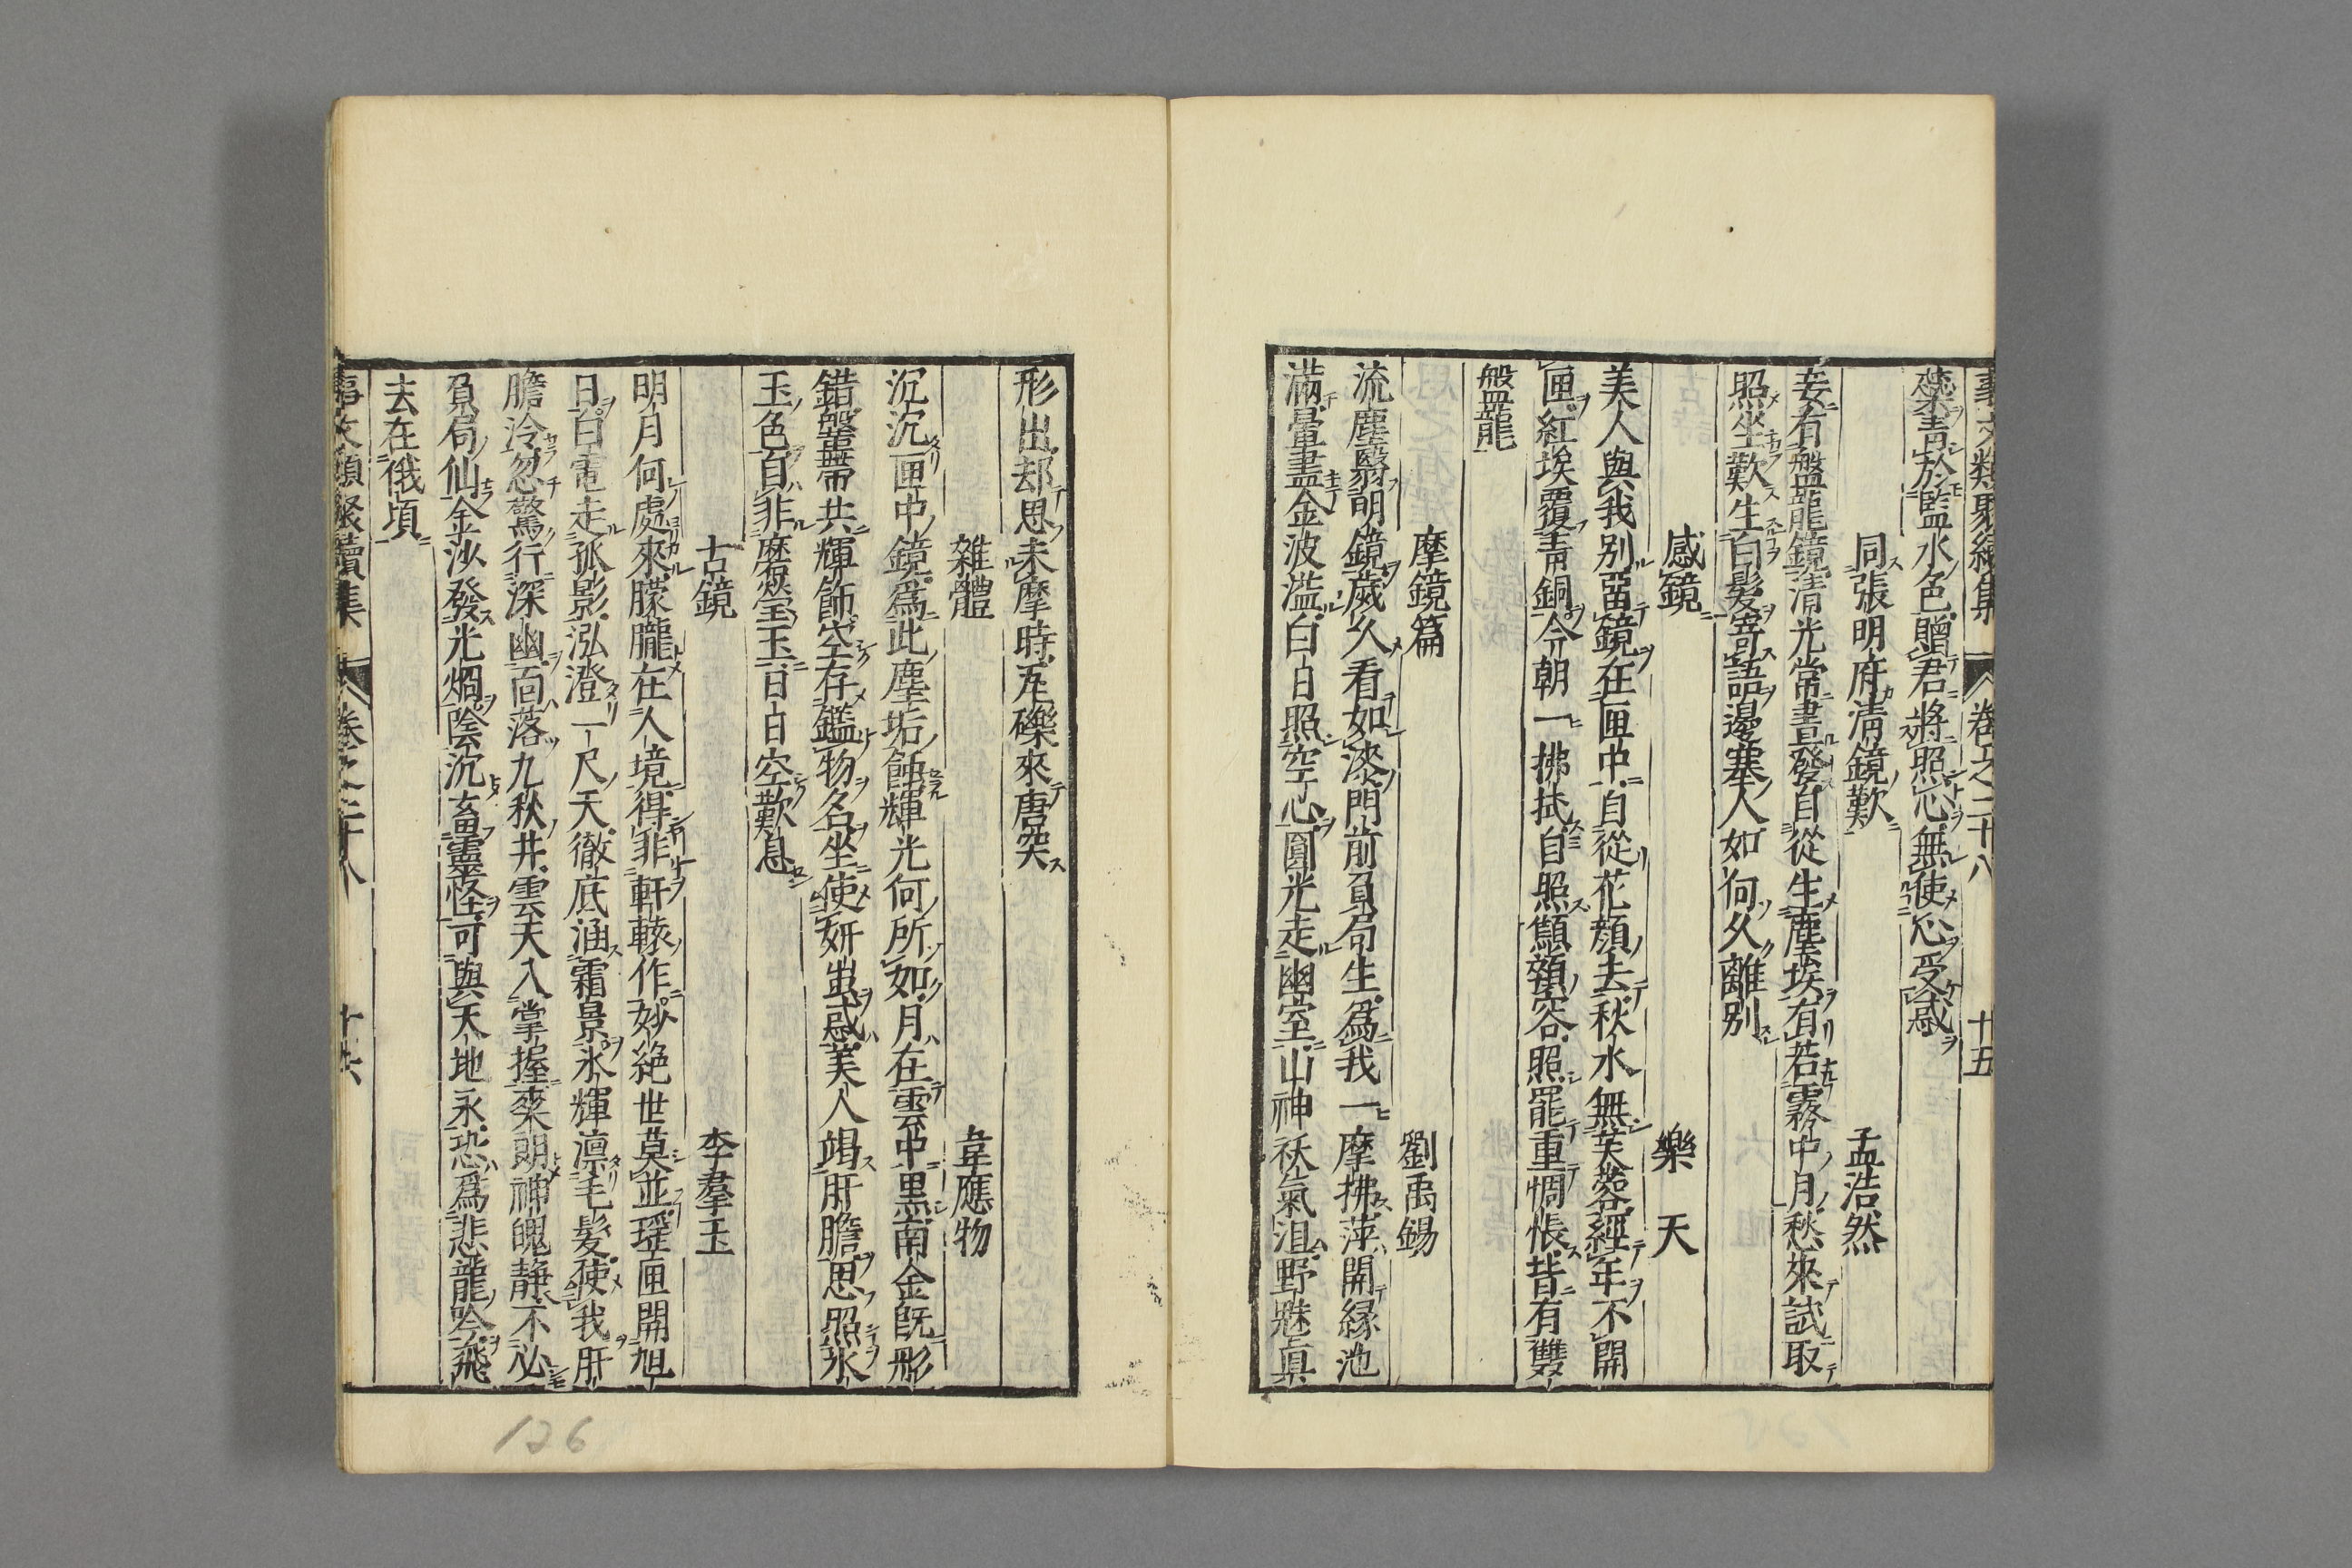 事文類聚續集 卷之二十八 十五
藥青於藍水色贈君將照心無使心受慼
同張明府清鏡歎 孟浩然
妾有盤龍鏡清光常晝發自從生塵埃有若霧中月愁來試取
照坐歎生白髮寄語邊塞人如何久離別
感鏡 樂天
美人與我別留鏡在匣中自從花顏去秋水無芙蓉經年不開
匣紅埃覆青銅今朝一拂拭自照顦顇容照罷重惆悵背有雙
盤龍
摩鏡篇 劉禹錫
流塵翳明鏡歲久看如漆門前負局生爲我一摩拂萍開緑池
滿暈盡金波溢白日照空心圓光走幽室山神祅氣沮野魅眞
形出却思未摩時瓦礫來唐突
雜體 韋應物
沉沉匣中鏡爲此塵垢蝕輝光何所如月在雲中黒南金旣彫
錯鞶帶共輝飾空存鑑物名坐使妍蚩惑美人竭肝膽思照氷
玉色自非磨瑩玉日日空歎息
古鏡 李羣玉
明月何處來朦朧在人境得非軒轅作妙絶世莫並瑶匣開旭
日白電走孤影泓澄一尺天徹底涵霜景氷輝凛毛髮使我肝
膽冷忽驚行深幽面落九秋井雲天入掌握爽朗神魄静不必
負局仙金沙發光炯陰沉畜靈怪可與天地永恐爲悲龍吟飛
去在俄頃
事文類聚續集 卷之二十八 十六
126